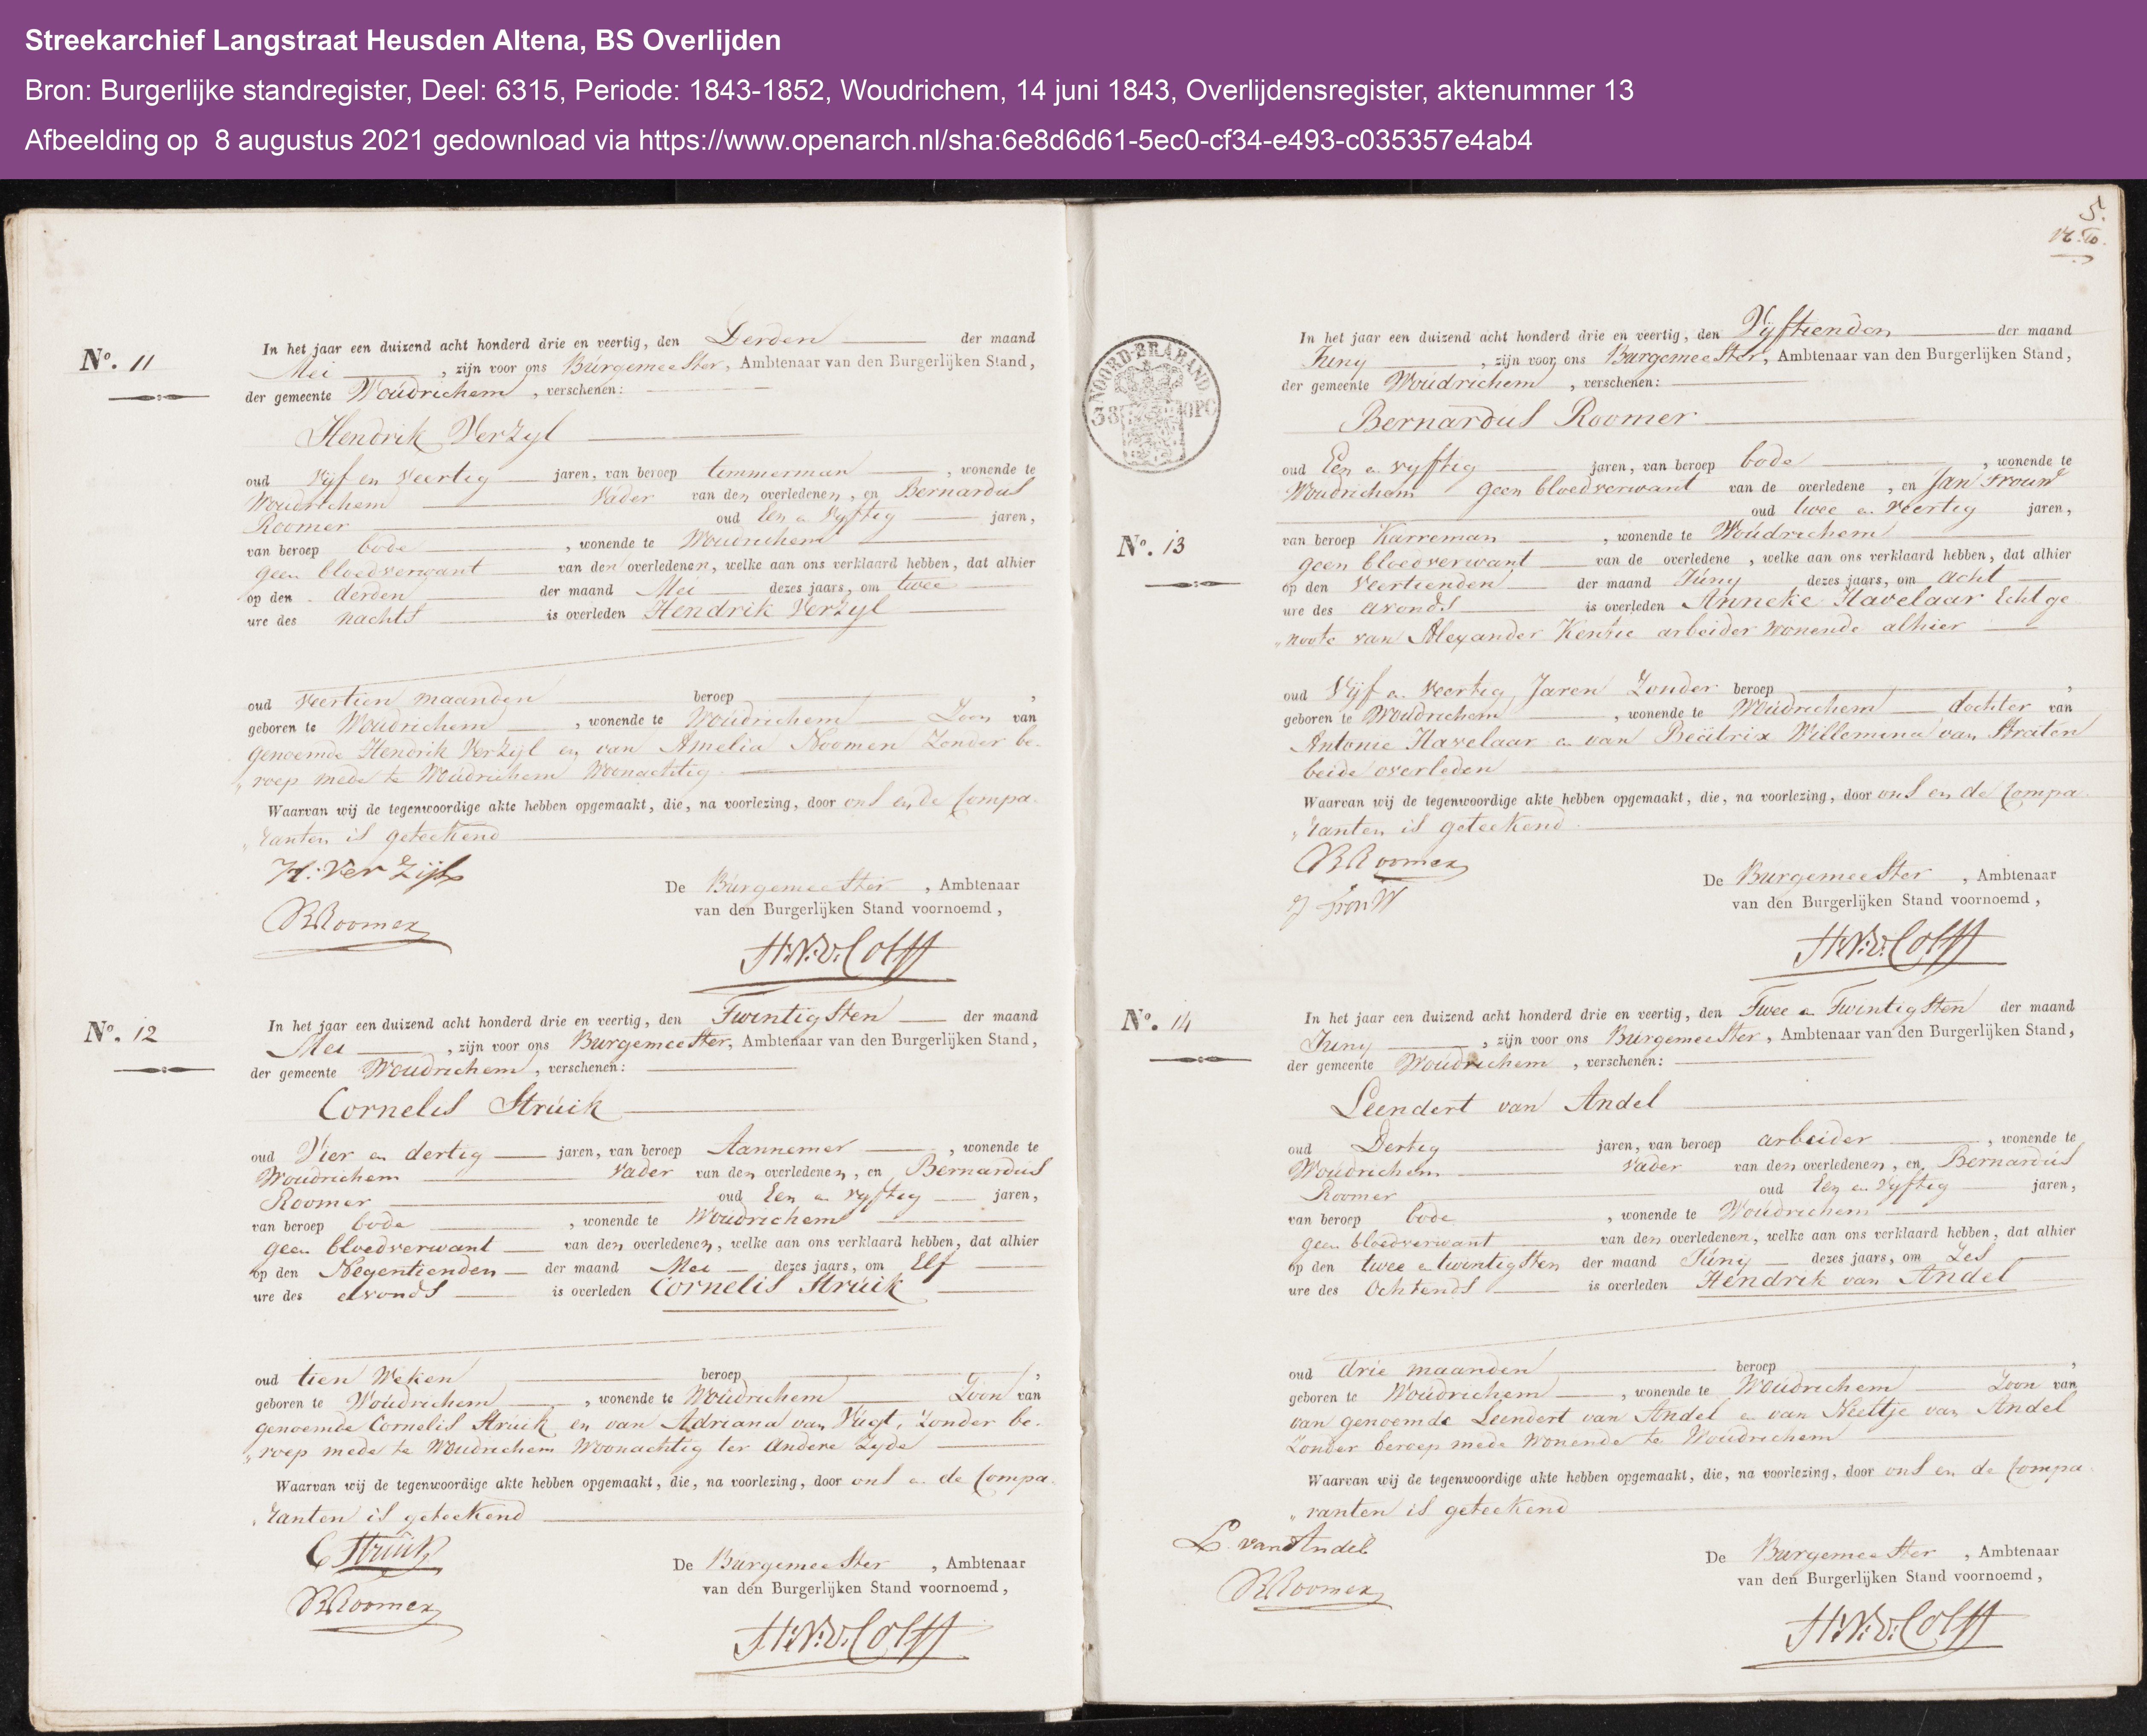 Streekarchief Langstraat Heusden Altena, BS Overlijden
Bron: Burgerlijke standregister, Deel: 6315, Periode: 1843-1852, Woudrichem, 14 juni 1843, Overlijdensregister, aktenummer 13
Afbeelding op 8 augustus 2021 gedownload via https://www.openarch.nl/sha:6e8d6d61-5ec0-cf34-e493-c035357e4ab4
No. 11
In het jaar een duizend acht honderd drie en veertig, den Derden der maand
Mei, zijn voor ons Burgemeester, Ambtenaar van den Burgerlijken Stand,
der gemeente Woudrichem, verschenen:
Hendrik Verzyl
oud Vijf en Veertig jaren, van beroep timmerman, wonende te
Woudrichem Vader van den overledenen, en Bernardus
Roomer oud Een en Vyftig jaren,
van beroep bode, wonende te Woudrichem
geen bloedverwant van den overledenen, welke aan ons verklaard hebben, dat alhier
op den derden der maand Mei dezes jaars, om twee
ure des nachts is overleden Hendrik Verzyl
oud veertien maanden beroep ,
geboren te Woudrichem, wonende te Woudrichem Zoon van
genoemde Hendrik Verzijl en van Amelia Noomen Zonder be-
„roep mede te Woudrichem Woonachtig.
Waarvan wij de tegenwoordige akte hebben opgemaakt, die, na voorlezing, door ons en de Compa-
„ranten is geteekend
H: Ver Zijl
BRoomer
De Burgemeester, Ambtenaar
van den Burgerlijken Stand voornoemd,
H.N.v. Colff
No. 12
In het jaar een duizend acht honderd drie en veertig, den Twintigsten der maand
Mei, zijn voor ons Burgemeester, Ambtenaar van den Burgerlijken Stand,
der gemeente Woudrichem, verschenen:
Cornelis Struik
oud Vier en dertig jaren, van beroep Aannemer, wonende te
Woudrichem Vader van den overledenen, en Bernardus
Roomer oud Een en vyftig jaren,
van beroep bode, wonende te Woudrichem
geen bloedverwant van den overledenen, welke aan ons verklaard hebben, dat alhier
op den Negentienden der maand Mei dezes jaars, om Elf
ure des avonds is overleden Cornelis Struik
oud tien Weken beroep ,
geboren te Woudrichem, wonende te Woudrichem Zoon van
genoemde Cornelis Struik en van Adriana van Vugt, Zonder be-
„roep mede te Woudrichem Woonachtig ter Andere Zyde
Waarvan wij de tegenwoordige akte hebben opgemaakt, die, na voorlezing, door ons en de Compa-
„ranten is geteekend
C Struik
BRoomer
De Burgemeester, Ambtenaar
van den Burgerlijken Stand voornoemd,
H.N.v. Colff
5.
NOORD-BRABAND
38 OPC
No. 13
In het jaar een duizend acht honderd drie en veertig, den Vijftienden der maand
Juny, zijn voor ons Burgemeester, Ambtenaar van den Burgerlijken Stand,
der gemeente Woudrichem, verschenen:
Bernardus Roomer
oud Een en vyftig jaren, van beroep bode, wonende te
Woudrichem geen bloedverwant van de overledene, en Jan Trouw
oud twee en Veertig jaren,
van beroep Karreman, wonende te Woudrichem
geen bloedverwant van de overledene, welke aan ons verklaard hebben, dat alhier
op den Veertienden der maand Juny dezes jaars, om acht
ure des avonds is overleden Anneke Havelaar Echtge
„noote van Alexander Kenzie arbeider wonende alhier
oud Vijf en Veertig Jaren Zonder beroep ,
geboren te Woudrichem, wonende te Woudrichem dochter van
Antonie Havelaar en van Beatrix Willemina van Straten
beide overleden
Waarvan wij de tegenwoordige akte hebben opgemaakt, die, na voorlezing, door ons en de Compa-
„ranten is geteekend.
BRoomer
J Trouw
De Burgemeester, Ambtenaar
van den Burgerlijken Stand voornoemd,
H.N.v. Colff
No. 14
In het jaar een duizend acht honderd drie en veertig, den Twee en Twintigsten der maand
Juny, zijn voor ons Burgemeester, Ambtenaar van den Burgerlijken Stand,
der gemeente Woudrichem, verschenen:
Leendert van Andel
oud Dertig jaren, van beroep arbeider, wonende te
Woudrichem Vader van den overledenen, en Bernardus
Roomer oud Een en Vyftig jaren,
van beroep bode, wonende te Woudrichem
geen bloedverwant van den overledenen, welke aan ons verklaard hebben, dat alhier
op den twee en twintigsten der maand Juny dezes jaars, om Zes
ure des Ochtends is overleden Hendrik van Andel
oud drie maanden beroep ,
geboren te Woudrichem, wonende te Woudrichem Zoon van
van genoemde Leendert van Andel en van Neeltje van Andel
Zonder beroep mede Wonende te Woudrichem
Waarvan wij de tegenwoordige akte hebben opgemaakt, die, na voorlezing, door ons en de Compa-
„ranten is geteekend
L. van Andel
BRoomer
De Burgemeester, Ambtenaar
van den Burgerlijken Stand voornoemd,
H.N.v. Colff